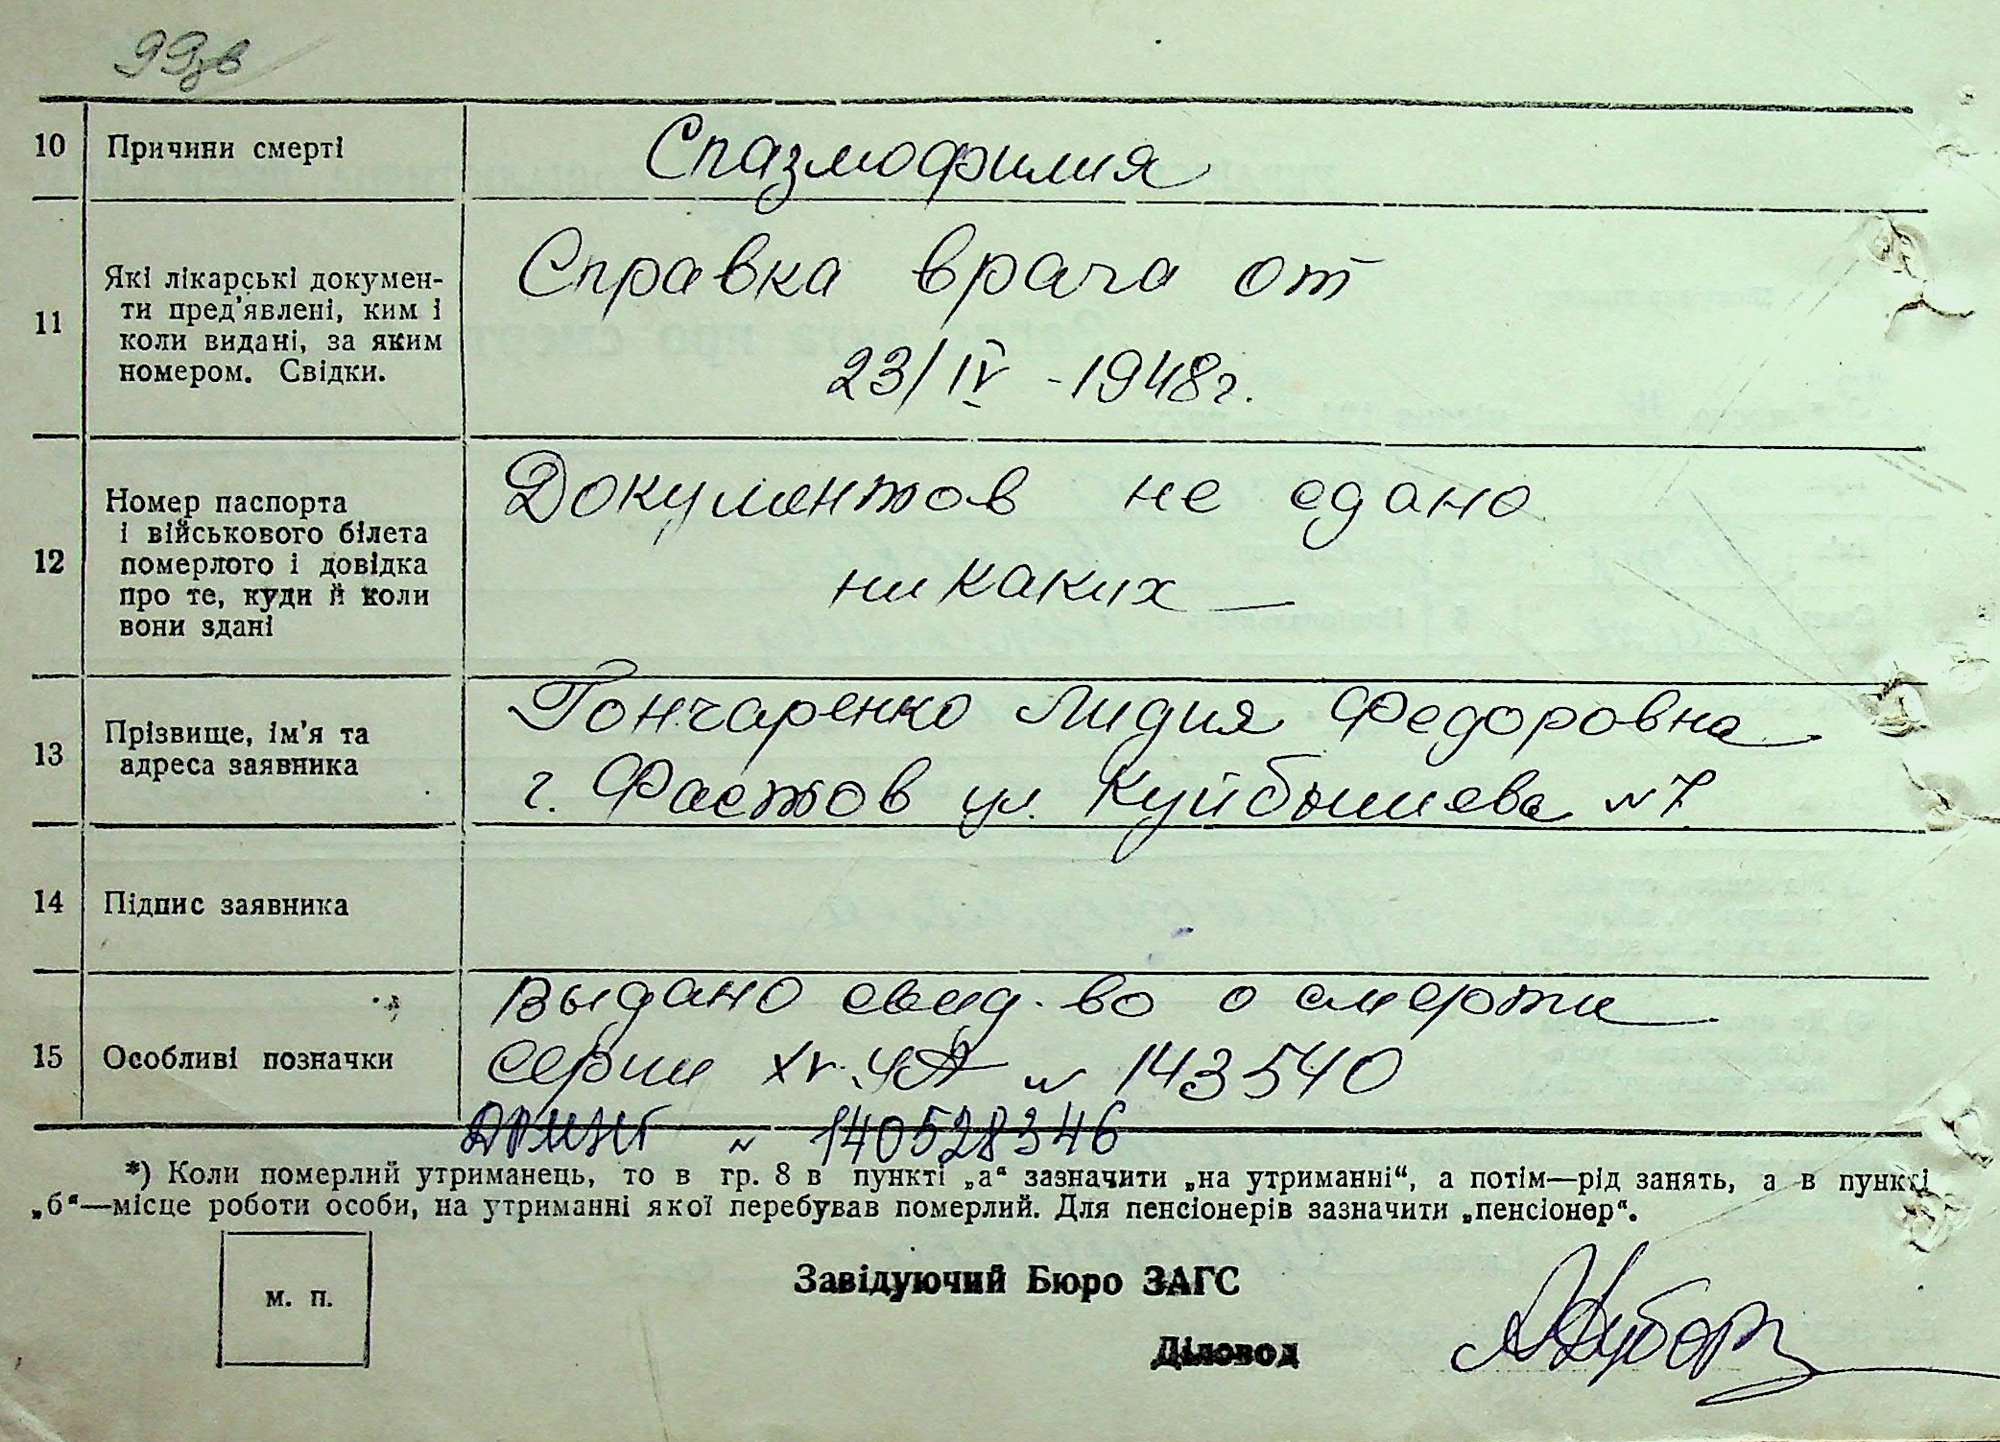 99зв
10 Причини смерті Спазмофилия
11 Які лікарські докумен-
ти пред'явлені, ким і
коли видані, за яким
номером. Свідки.
Справка врача от
23/IV - 1948г.
12 Номер паспорта
і військового білета
померлого і довідка
про те, куди й коли
вони здані
Документов не сдано
никаких —
13 Прізвище, ім'я та
адреса заявника
Гончаренко Лидия Федоровна
г. Фастов ул. Куйбышева №7
14 Підпис заявника
15 Особливі позначки
Выдано свид-во о смерти
серии XV. УА № 143540
№ 140528346
*) Коли померлий утриманець, то в гр. 8 в пункті „а“ зазначити „на утриманні“, а потім—рід занять, а в пункті
„б“—місце роботи особи, на утриманні якої перебував померлий. Для пенсіонерів зазначити „пенсіонер“.
м. п.
Завідуючий Бюро ЗАГС
Діловод